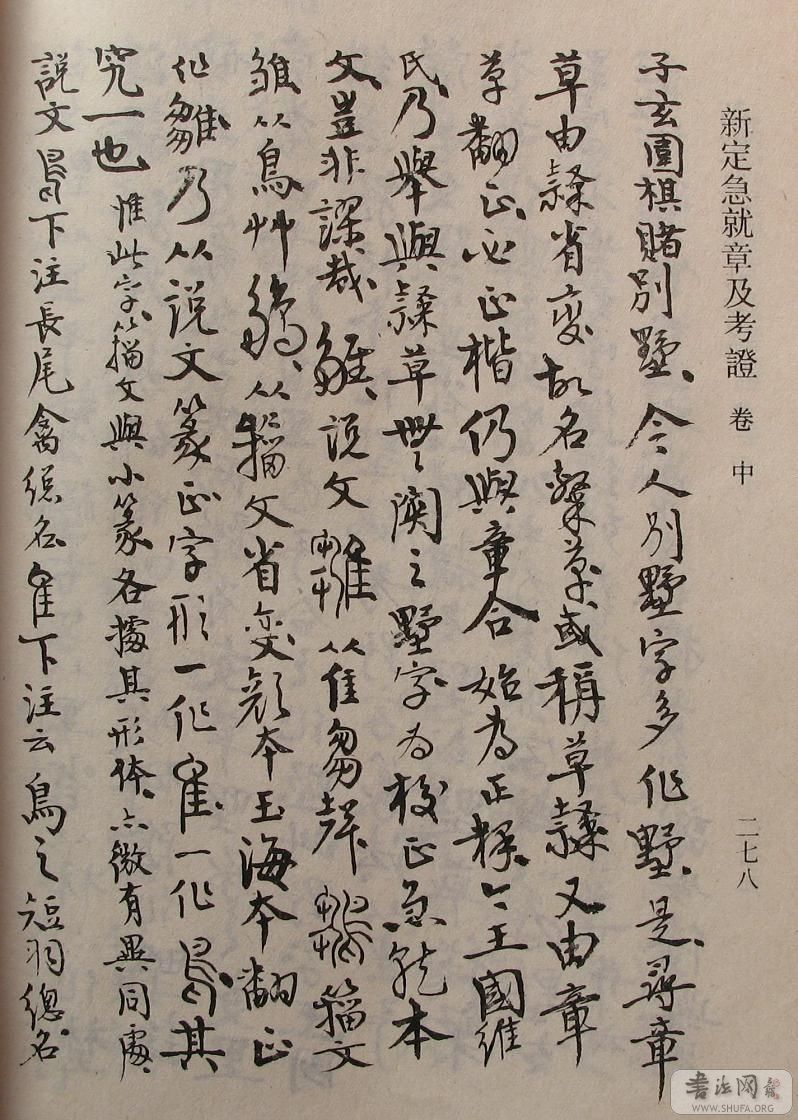 新定急就章及考證 卷中 二七八
子玄圍棋賭別墅今人別墅字多作墅是尋章
草由隸省變故名繫草或稱草隸又由章
草翻正必正楷仍與章合始為正釋今王國維
氏乃舉與隸草無關之野字為校正急就本
文豈非謬哉雛說文雛从隹芻聲鶵籀文
雛从鳥艸鶵从籀文省變顏本玉海本翻正
作雛乃从說文篆正字形一作隹一作鳥其
究一也惟此字籀文與小篆各據其形体亦微有異同處
說文鳥下注長尾禽總名隹下注云鳥之短羽總名
書法网
WWW.SHUFA.ORG